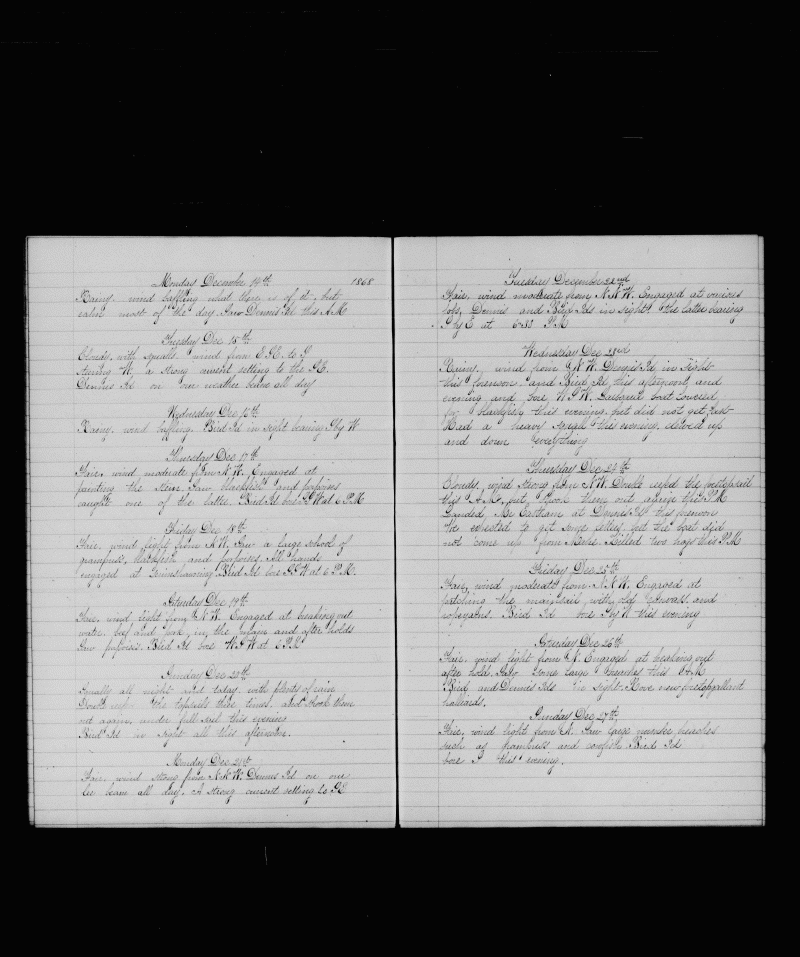 Monday December 14th 1868
Rainy, wind baffling what there is of it, but
calm most of the day. Saw Dennis Id this A.M.
Tuesday Dec 15th
Cloudy, with squalls wind from E.S.E. to S
Steering W, a strong current setting to the SE.
Dennis Id on our weather beam all day
Wednesday Dec 16th
Rainy, wind baffling. Bird Id in sight bearing S by W
Thursday Dec 17th
Fair, wind moderate from N.W. Engaged at
painting the stern. Saw blackfish and porpoises
caught one of the latter. Bird Id bore S.W at 6 P.M
Friday Dec 18th
Fair, wind light from N.W. Saw a large school of
grampuses, blackfish and porpoises. All hands
engaged at Bird Id bore S.S.W at 6 P.M.
Saturday Dec 19th
Fair, wind light from N.W. Engaged at breaking out
water, beef and pork, in the main and after holds
Saw porpoises. Bird Id bore W.S.W at 6 P.M
Sunday Dec 20th
Squally all night and today, with plenty of rain
Double reefed the topsails three times, and shook them
out again, under full sail this evening
Bird Id in sight all this afternoon.
Monday Dec 21st
Fair, wind strong from N.N.W. Dennis Id on our
lee beam all day. A strong current setting to S.E
Tuesday December 22nd
Fair, wind moderate from N.N.W. Engaged at various
jobs, Dennis and Bird Ids in sight, the latter bearing
S by E at P.M
Wednesday Dec 23rd
Rainy, wind from N.W. Dennis Id in sight
this forenoon and Bird Id this afternoon and
evening and bore W.S.W. Larboard boat lowered
for blackfish this evening, but did not get fast
Had a heavy squall this evening, clewed up
and down everything
Thursday Dec 24th
Cloudy, wind strong from N.W. Double reefed the foretopsail
this A.M. but shook them out again this P.M
Landed Mr Eastham at Dennis Id this forenoon
We expected to get some letters, but the boat did
not come up from Mahe. Killed two hogs this P.M
Friday Dec 25th
Fair, wind moderate from N.N.W. Engaged at
patching the mainsail, with old canvass, and
ropeyarns. Bird Id bore S by W this evening
Saturday Dec 26th
Fair, wind light from N. Engaged at breaking out
after hold. Saw some large breaches this A.M
Bird and Dennis Ids in sight. Rove new foretopgallant
halliards.
Sunday Dec 27th
Fair, wind light from N. Saw large number breaches
such as grampuses and cowfish Bird Id
bore S this evening.